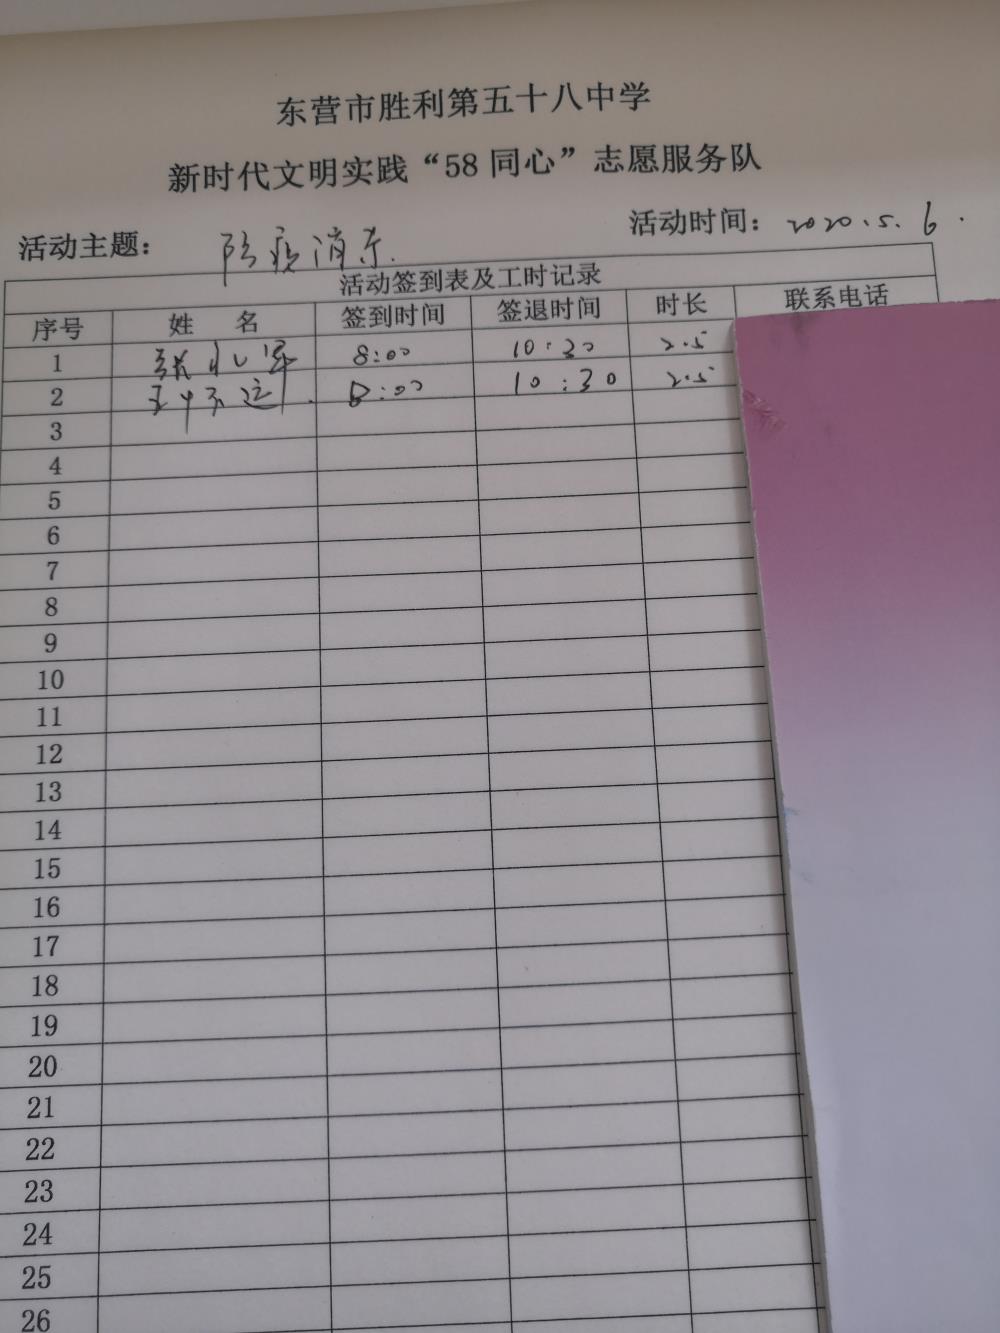 东营市胜利第五十八中学
新时代文明实践“58同心”志愿服务队
活动主题: 防疫消杀. 活动时间: 2020.5.6.
活动签到表及工时记录
序号 姓 名 签到时间 签退时间 时长 联系电话
1 8:00 10:30 2.5
2 8:00 10:30 2.5
3
4
5
6
7
8
9
10
11
12
13
14
15
16
17
18
19
20
21
22
23
24
25
26